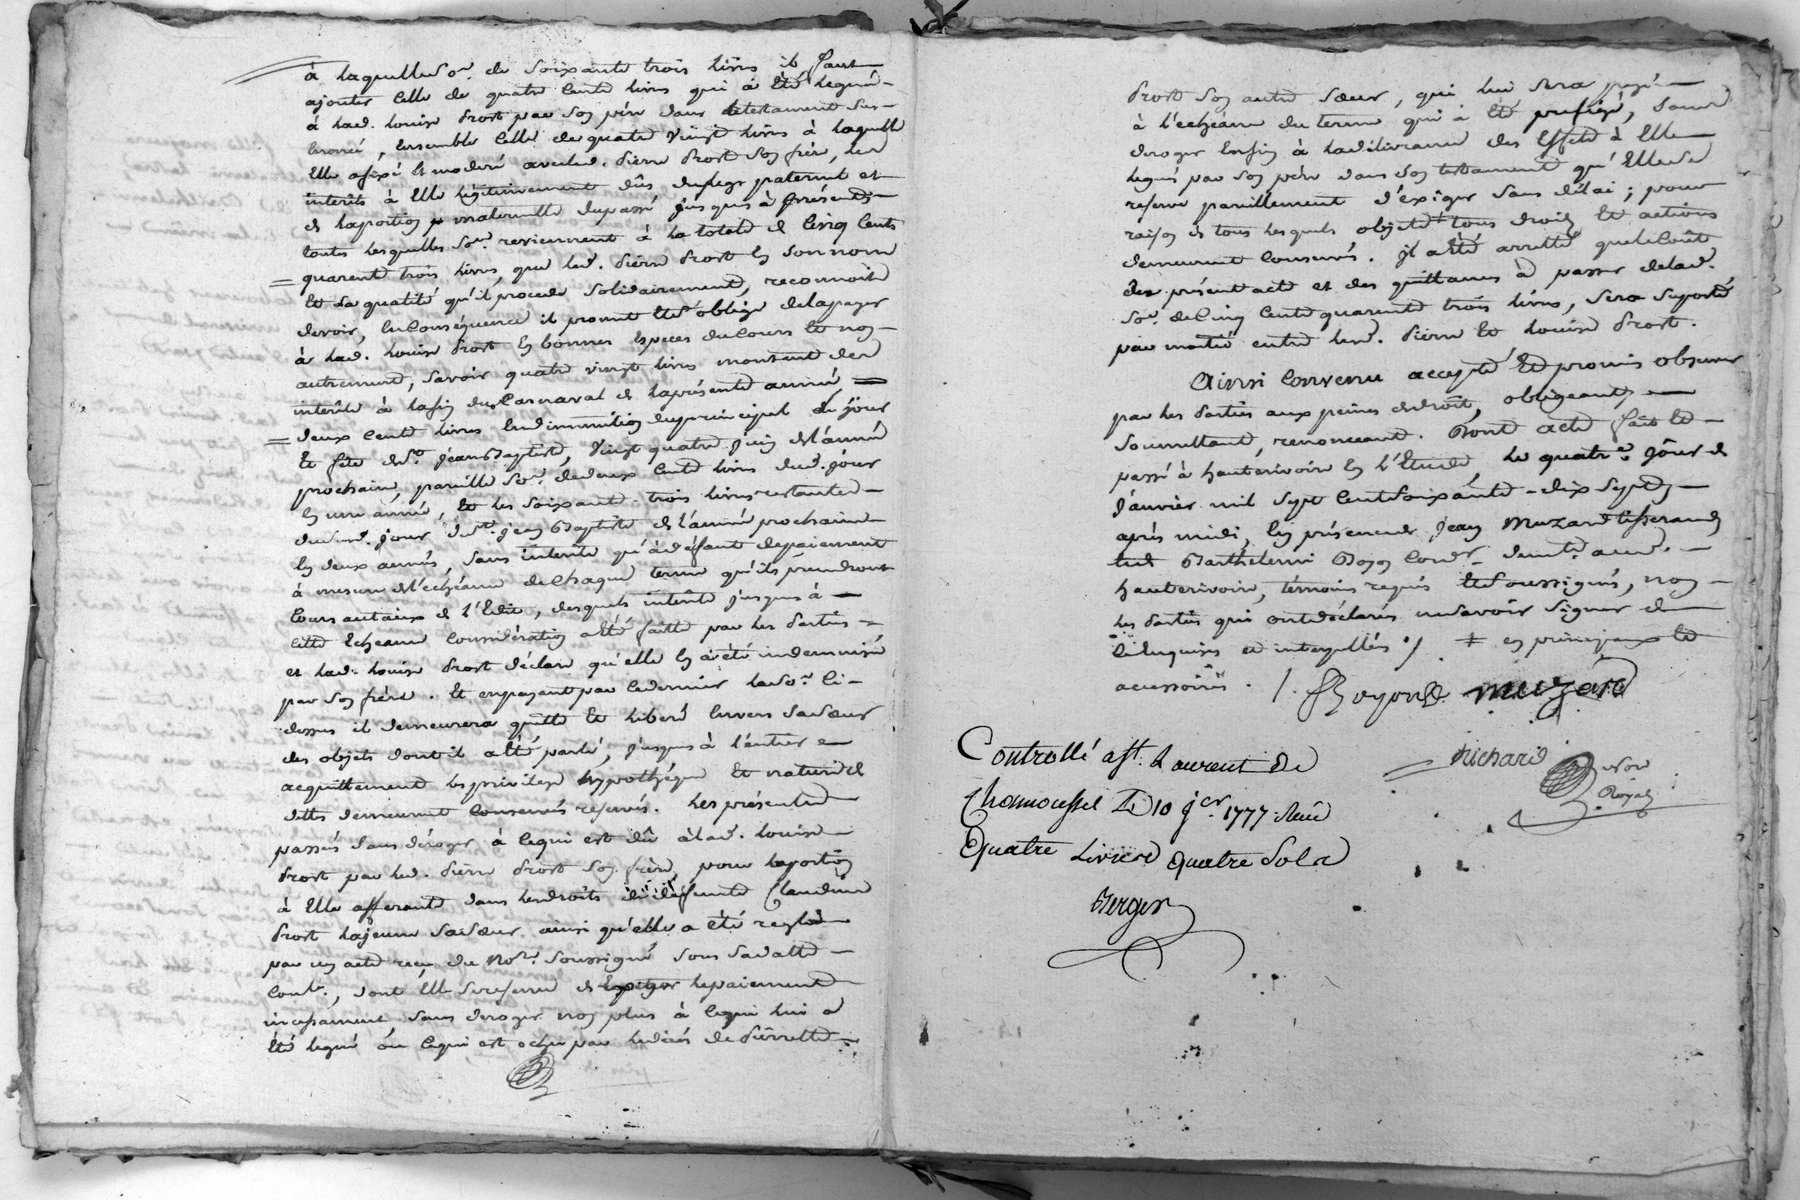 à laquelle so.e de soixante trois livres il faut
ajouter celle de quatre cents livres qui a été leguée
à lad. louise Prost par son père dans le testament sus
énoncé, ensemble celle de quatre vingt livres à laquelle
elle a fixé et modéré avec led. Pierre Prost son frère, les
interêts à elle légitimement dûs du legs paternel et
de la portion maternelle du passé jusques à présent,
toutes lesquelles so.es reviennent à la totale de cinq cents
quarente trois livres, que led. Pierre Prost en son nom
et sa qualité qu'il procede solidairement, reconnoit
devoir, en conséquence il promet et s'oblige de la payer
à lad. louise Prost en bonnes especes du cours et non
autrement, savoir quatre vingt livres montant des
interêts à la fin du Carnaval de la présente année
deux cents livres en diminution du principal du jour
et fête de s.t jean Baptiste, vingt quatre juin de l'année
prochaine, pareille so.e de deux cents livres dud. jour
en une année, et les soixante trois livres restantes
dud. jour de s.t jean Baptiste de l'année prochaine
en deux années, sans interêts qu'à défaut de paiement
à mesure de l'échéance de chaque terme qu'ils prendront
cours au taux de l'Edit, desquels interêts jusques à
cette echeance considération a été faitte par les Parties
et lad. louise Prost déclare qu'elle en a été indemnisée
par son frère. Et en payant par ce dernier la so.e ci
dessus il demeurera quitte et liberé envers sa sœur
des objets dont il a été parlé, jusques à l'entier
acquittement les privilege hypothéque et nature de
dette demeurent conservés reservés. les présentes
passées sans déroger à ce qui est dû à lad. louise
Prost par led. Pierre Prost son frère, pour la portion
à elle afferante dans les droits de défunte Claudine
Prost la jeune sa sœur ainsi qu'elle a été reglée
par un acte reçu du No.re soussigné sous sa datte
cont.e, dont elle se reserve de exiger le paiement
incessament, sans deroger non plus à ce qui lui a
été legué ou ce qui est echu par le décès de Pierrette
Prost son autre sœur, qui lui sera payé
à l'échéance du terme qui a été prefigé, sans
deroger enfin à la délivrance des effets à elle
legués par son père dans son testament qu'elle se
reserve pareillement d'éxiger sans délai; pour
raison de tous lesquels objets tous droits et actions
demeurent conservés. il a été arretté que le coût
des présent acte et des quittances à passer de lad.
so.e de cinq cents quarente trois livres, sera suporté
par moitié entre lesd. Pierre et louise Prost.
Ainsi convenu accepté et promis observer
par les Parties aux peines de droit, obligeant,
soumettant, renonceant. Dont acte fait et
passé à hauterivoire en l'Etude, le quatre jour de
Janvier mil sept cent soixante-dix sept,
après midi, en présence de jean Muzard tisserand
et de Barthelemi Boyon cord.r demt. aud.
hauterivoire, témoins requis et soussignés, non
les Parties qui ont déclarés ne savoir signer de
ce enquises et interpellés ./. ǂ en principaux et
accessoires. /. Boyon Muzard
Richard
No.re
Royal
Controllé à St. Laurent de
Chamousset Le 10 j.er 1777. Reçu
Quatre Livres quatre Sols
Berger